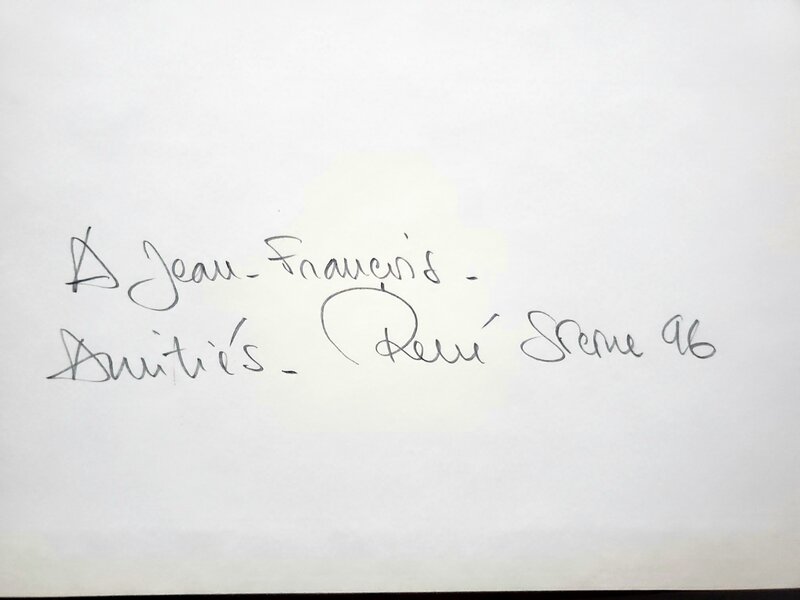 A Jean-François -
Amitiés - René Sterne 96